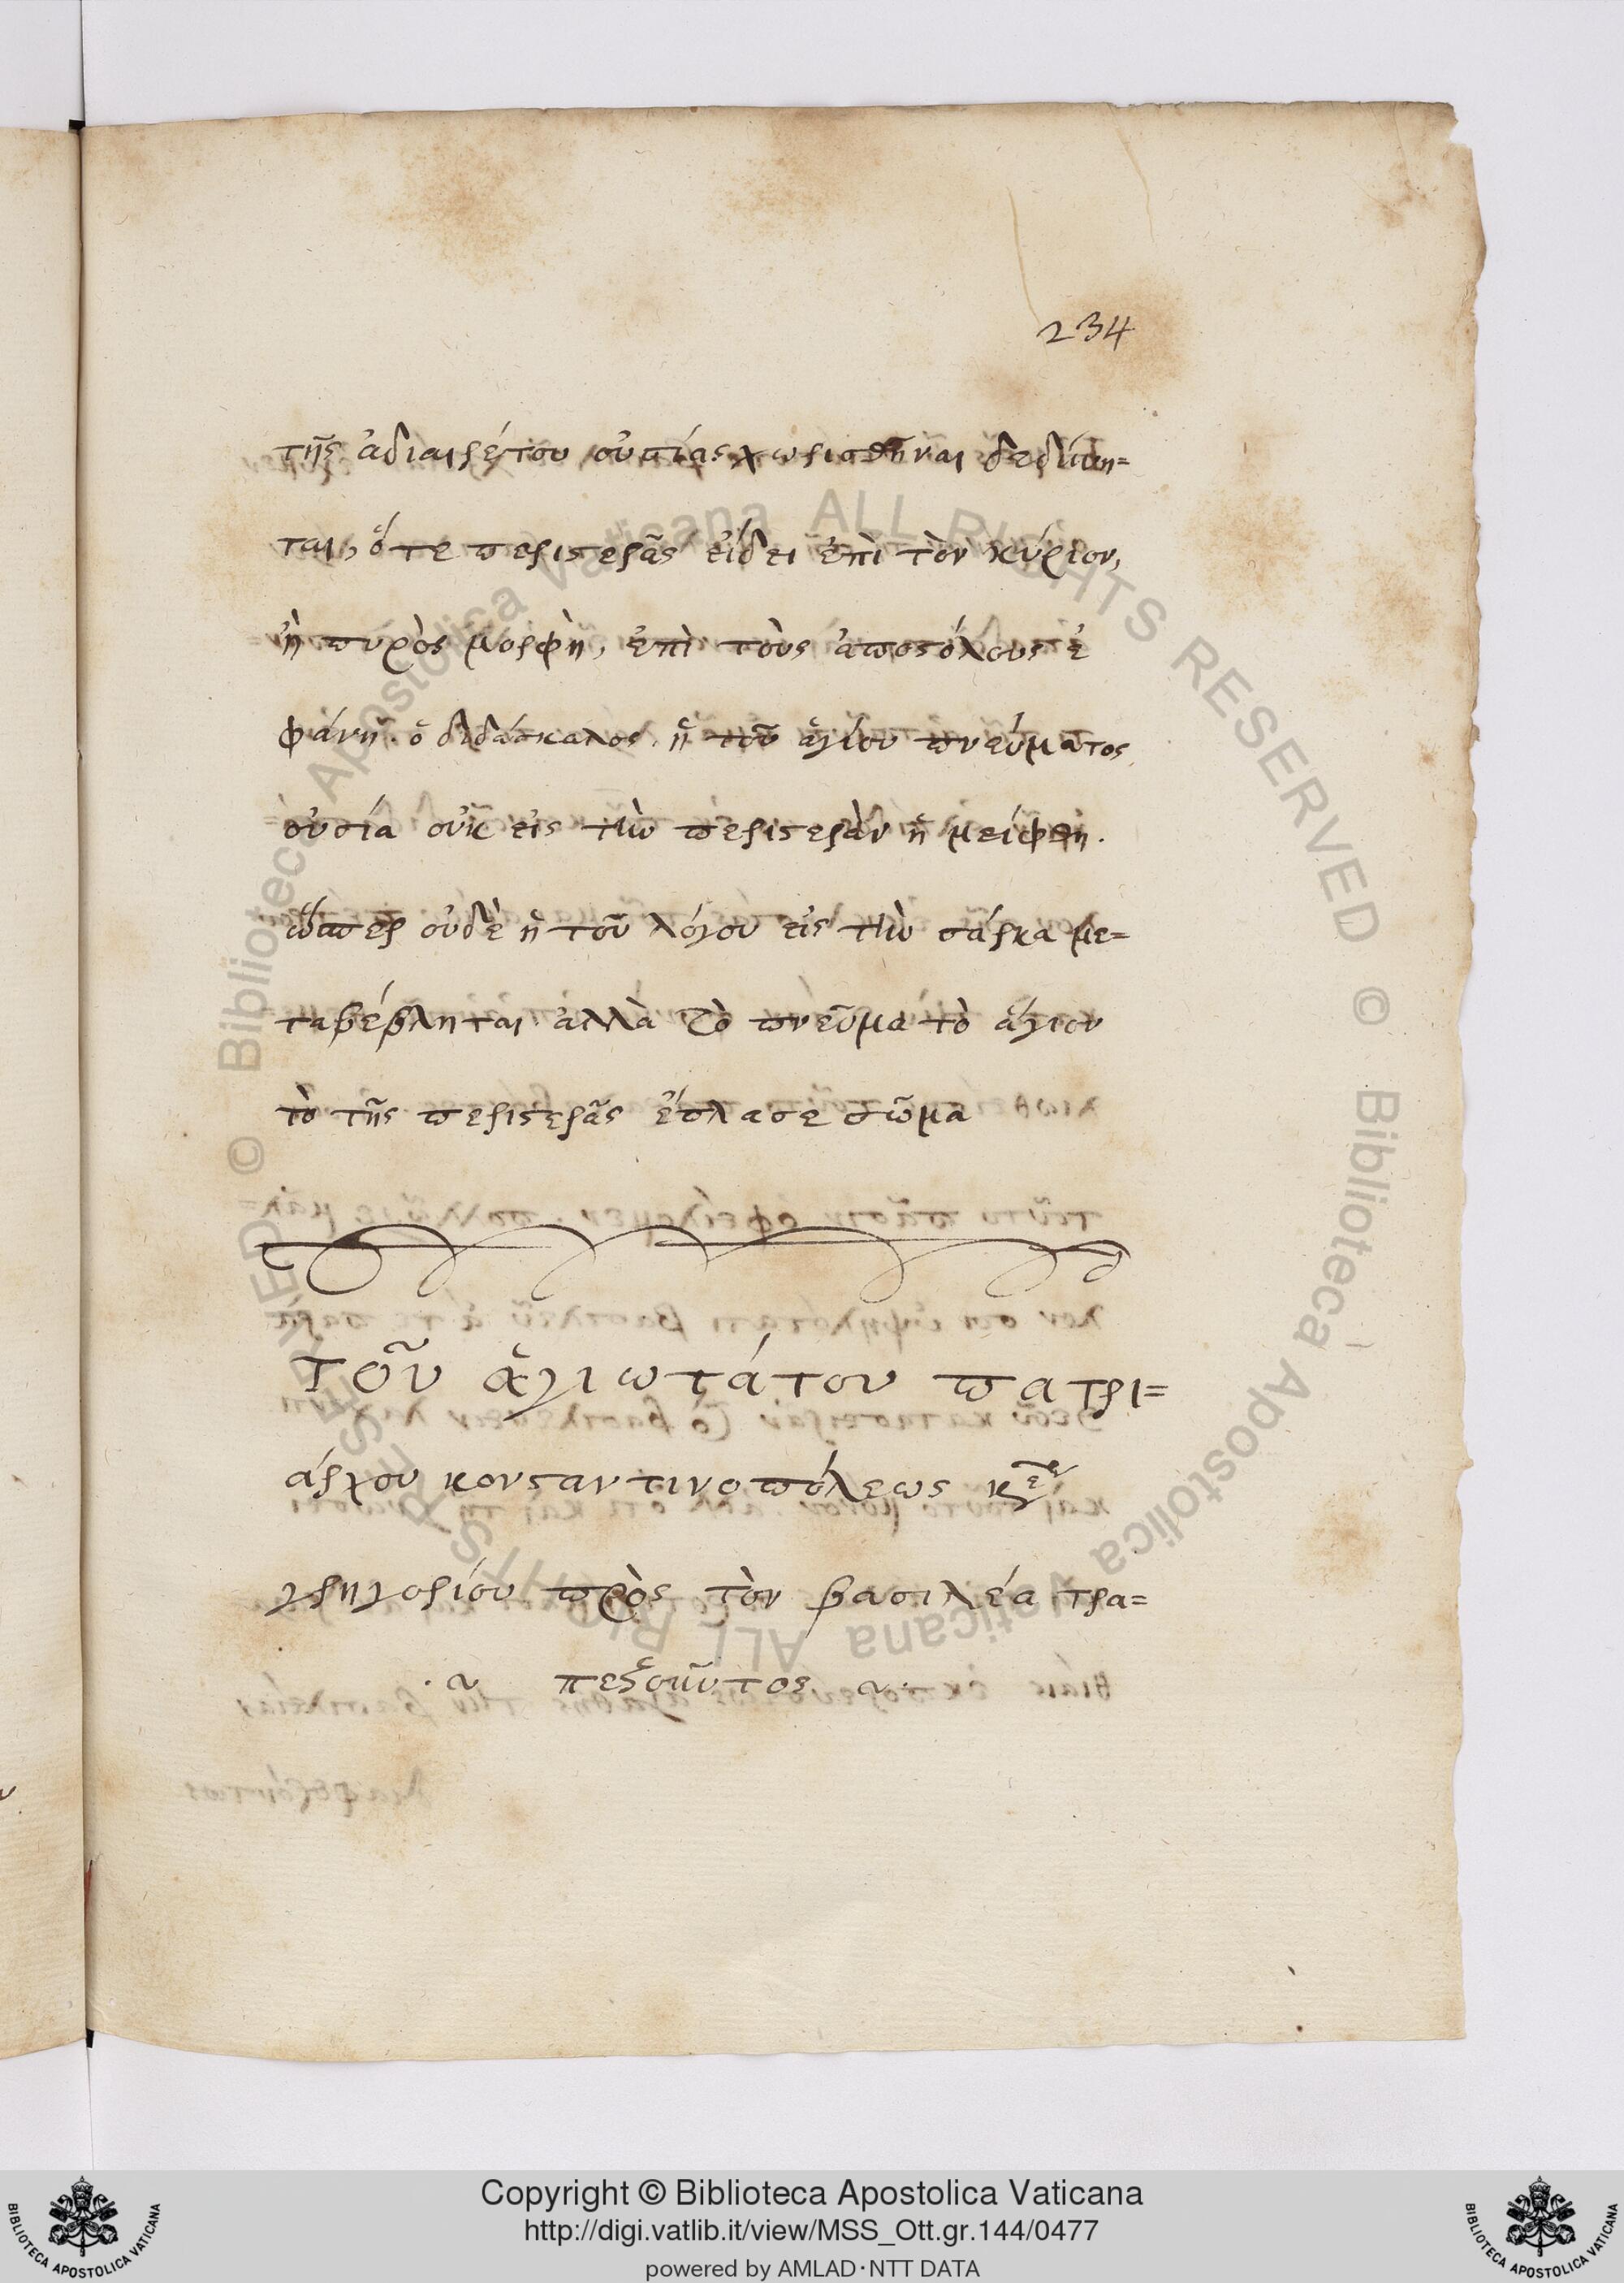 234
τῆς ἀδιαιρέτου οὐσίας χωρισθῆναι δεδύνη=
ται, ὅτε περιστερᾶς εἴδει ἐπὶ τὸν κύριον,
ἢ πυρὸς μορφὴ, ἐπὶ τοὺς ἀποστόλους ἐ
φάνη. ὁ διδάσκαλος. ἡ τοῦ ἁγίου πνεύματος
οὐσία οὐκ εἰς τὴν περιστερὰν ἡμείφθη.
ὥσπερ οὐδὲ ἡ τοῦ λόγου εἰς τὴν σάρκα με=
ταβέβληται ἀλλὰ τὸ πνεῦμα τὸ ἅγιον
τὸ τῆς περιστερᾶς ἔπλασε σῶμα
τοῦ ἁγιωτάτου πατρι=
άρχου κονσταντινοπόλεως
γρηγορίου πρὸς τὸν βασιλέα τρα=
πεζοῦντος
Copyright © Biblioteca Apostolica Vaticana
http://digi.vatlib.it/view/MSS_Ott.gr.144/0477
powered by AMLAD·NTT DATA
BIBLIOTECA APOSTOLICA VATICANA
BIBLIOTECA APOSTOLICA VATICANA
© Biblioteca Apostolica Vaticana ALL RIGHTS RESERVED
© Biblioteca Apostolica Vaticana ALL RIGHTS RESERVED